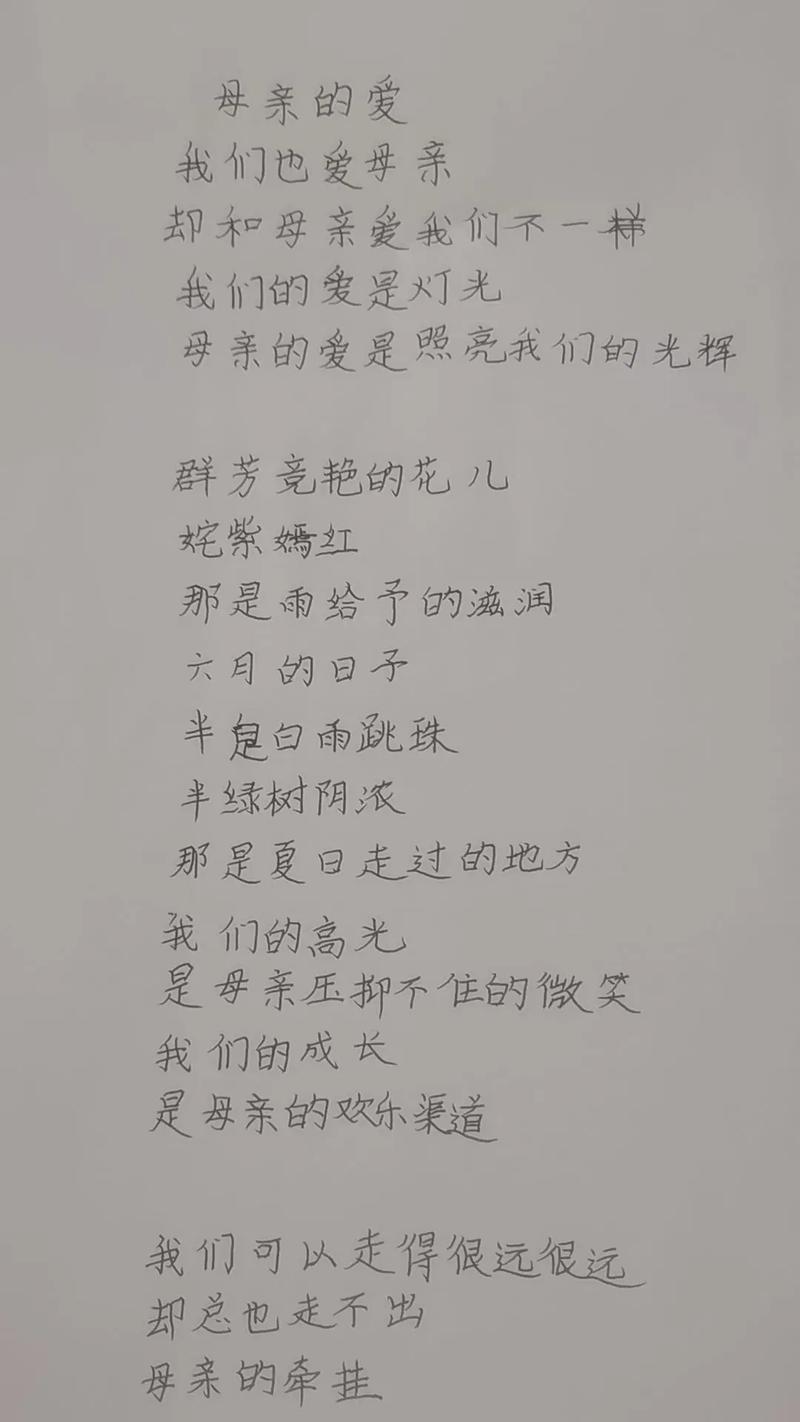 母亲的爱
我们也爱母亲
却和母亲爱我们不一样
我们的爱是灯光
母亲的爱是照亮我们的光辉
群芳竞艳的花儿
姹紫嫣红
那是雨给予的滋润
六月的日子
半是白雨跳珠
半绿树阴浓
那是夏日走过的地方
我们的高光
是母亲压抑不住的微笑
我们的成长
是母亲的欢乐渠道
我们可以走得很远很远
却总也走不出
母亲的牵挂